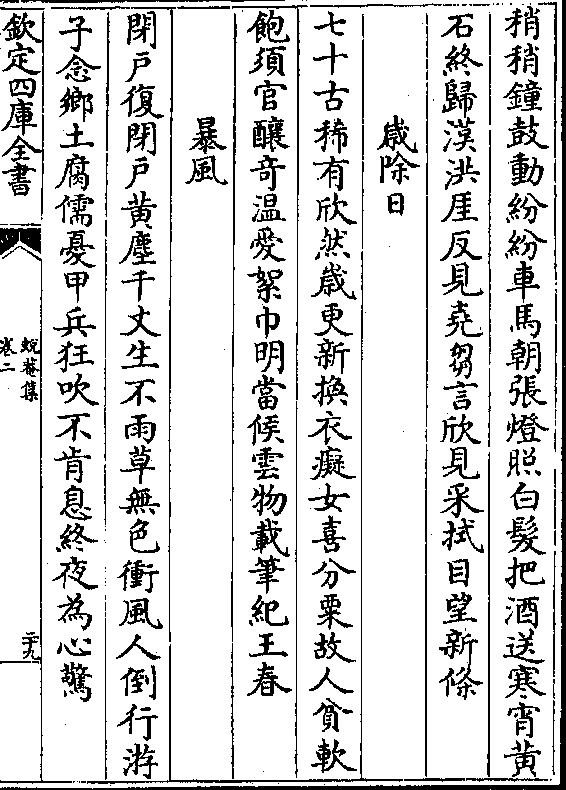 稍稍鐘鼓動紛紛車馬朝張燈照白髮把酒送寒宵黃
石終歸漠洪厓反見堯芻言欣見采拭目望新條
歲除日
七十古稀有欣然歲更新換衣癡女喜分粟故人貧軟
飽須官釀奇温愛絮巾明當候雲物載筆紀王春
暴風
閉戸復閉戸黃塵千丈生不雨草無色衝風人倒行游
子念鄉土腐儒憂甲兵狂吹不肯息終夜為心驚
欽定四庫全書
蛻菴集
卷二
二十九